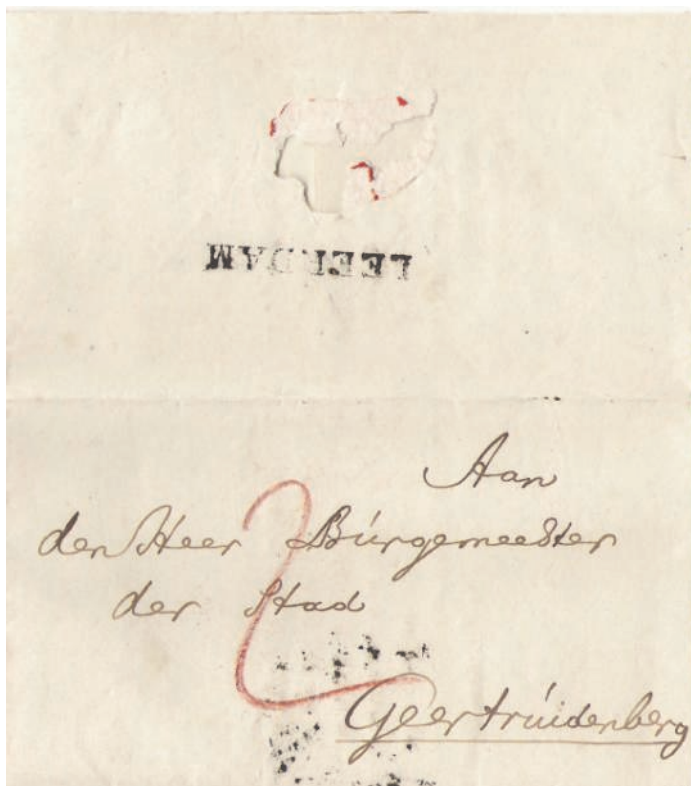 LEERDAM
Aan
den Heer Burgemeester
der Stad
2
Geertruidenberg